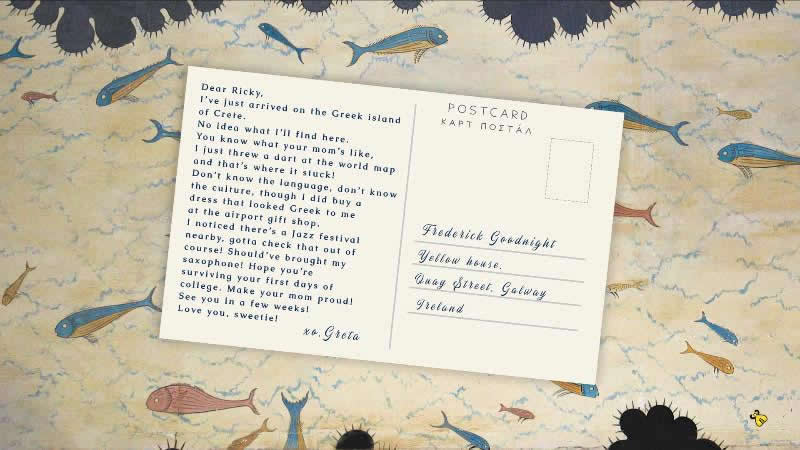 Dear Ricky,
I've just arrived on the Greek island
of Crete.
No idea what I'll find here.
You know what your mom's like,
I just threw a dart at the world map
and that's where it stuck!
Don't know the language, don't know
the culture, though I did buy a
dress that looked Greek to me
at the airport gift shop.
I noticed there's a Jazz festival
nearby, gotta check that out of
course! Should've brought my
saxophone! Hope you're
surviving your first days of
college. Make your mom proud!
See you in a few weeks!
Love you, sweetie!
xo, Greta
POSTCARD
ΚΑΡΤ ΠΟΣΤΆΛ
Frederick Goodnight
Yellow house,
Quay Street, Galway
Ireland